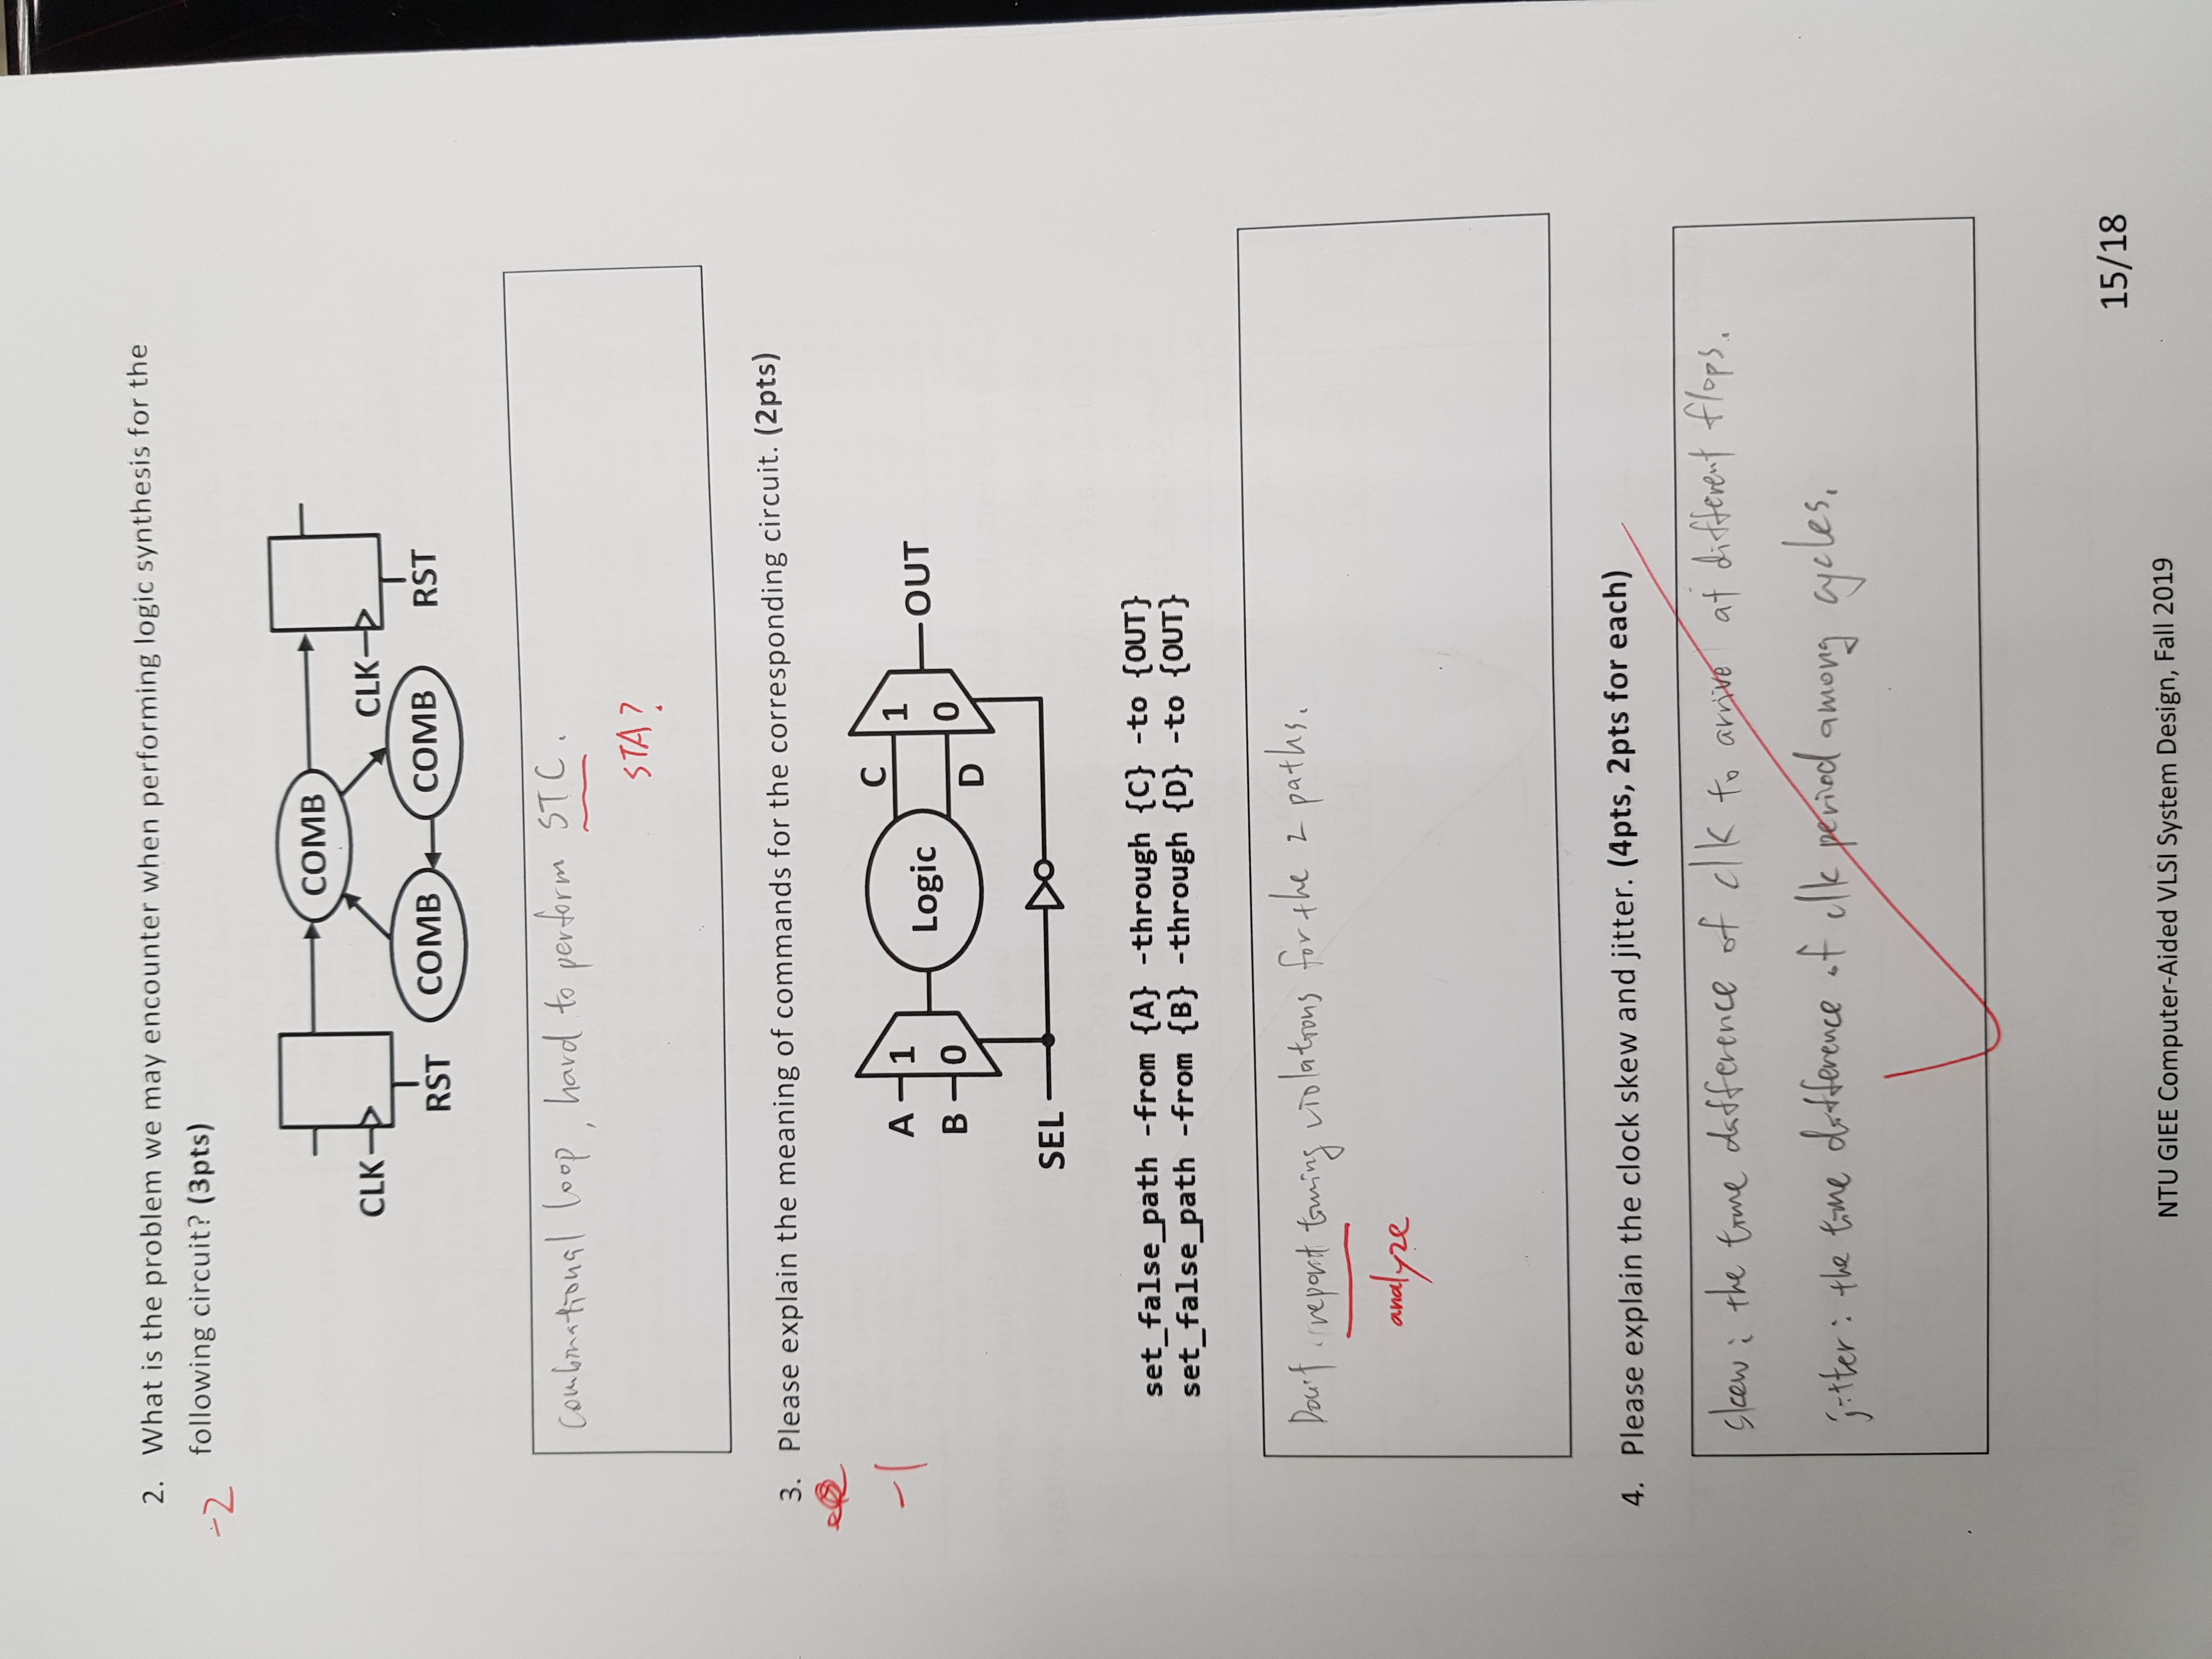 2. What is the problem we may encounter when performing logic synthesis for the
following circuit? (3pts)
-2
COMB
CLK
CLK
RST
COMB
COMB
RST
Combinational loop, hard to perform STC.
STA?
3. Please explain the meaning of commands for the corresponding circuit. (2pts)
-1
A
1
C
1
Logic
OUT
B
0
D
0
SEL
set_false_path -from {A} -through {C} -to {OUT}
set_false_path -from {B} -through {D} -to {OUT}
Don't report timing violations for the 2 paths.
analyze
4. Please explain the clock skew and jitter. (4pts, 2pts for each)
skew: the time difference of clk to arrive at different flops.
jitter: the time difference of clk period among cycles.
15/18
NTU GIEE Computer-Aided VLSI System Design, Fall 2019